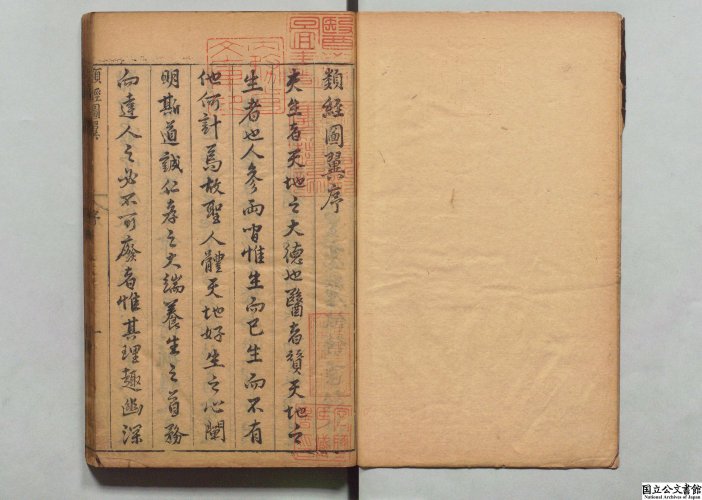 類經圖翼序
夫生者天地之大德也醫者贊天地之
生者也人參兩間惟生而已生而不有
他何計焉故聖人體天地好生之心闡
明斯道誠仁孝之大端養生之首務
而達人之必不可廢者惟其理趣幽深
類經圖翼
序
一
国立公文書館
National Archives of Japan